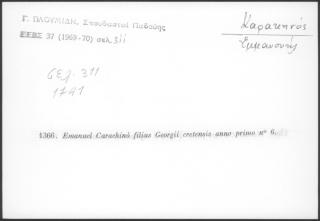 Γ. ΠΛΟΥΜΙΔΗ, Σπουδασταί Παδούης
ΕΕΒΣ 37 (1969-70) σελ. 311
Καρακηνός
Ἐμμανουήλ
σελ. 311
1741
1366. Emanuel Carachinà filius Georgii cretensis anno primo nº 6.